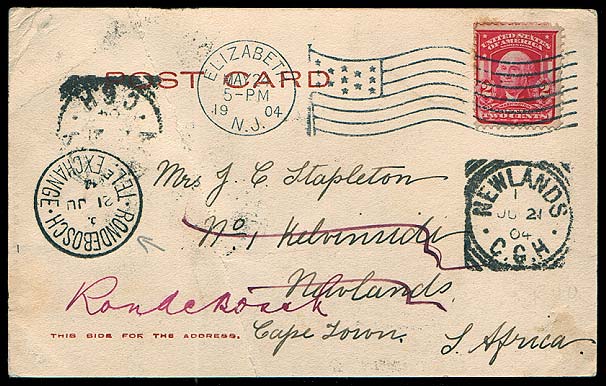 POST CARD
ELIZABETH
MAY 2
5-PM
1904
N.J.
UNITED STATES
OF AMERICA
2 2
TWO CENTS
C.G.H
RONDEBOSCH · TEL. EXCHANGE ·
21 JU
NEWLANDS
1
JU 21
04
C.G.H
Mrs J. C. Stapleton
No, 1 Kelvinside
Newlands.
Rondebosch
Cape Town.
S. Africa.
THIS SIDE FOR THE ADDRESS.